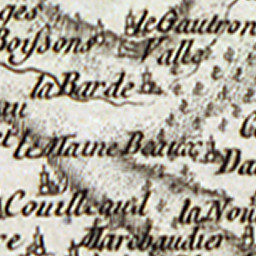 ges
le Gautron
Boissons
Valle
la Barde
au
le Maine Beaux
Da
Couilleaud
la Nou
re
Marchaudier